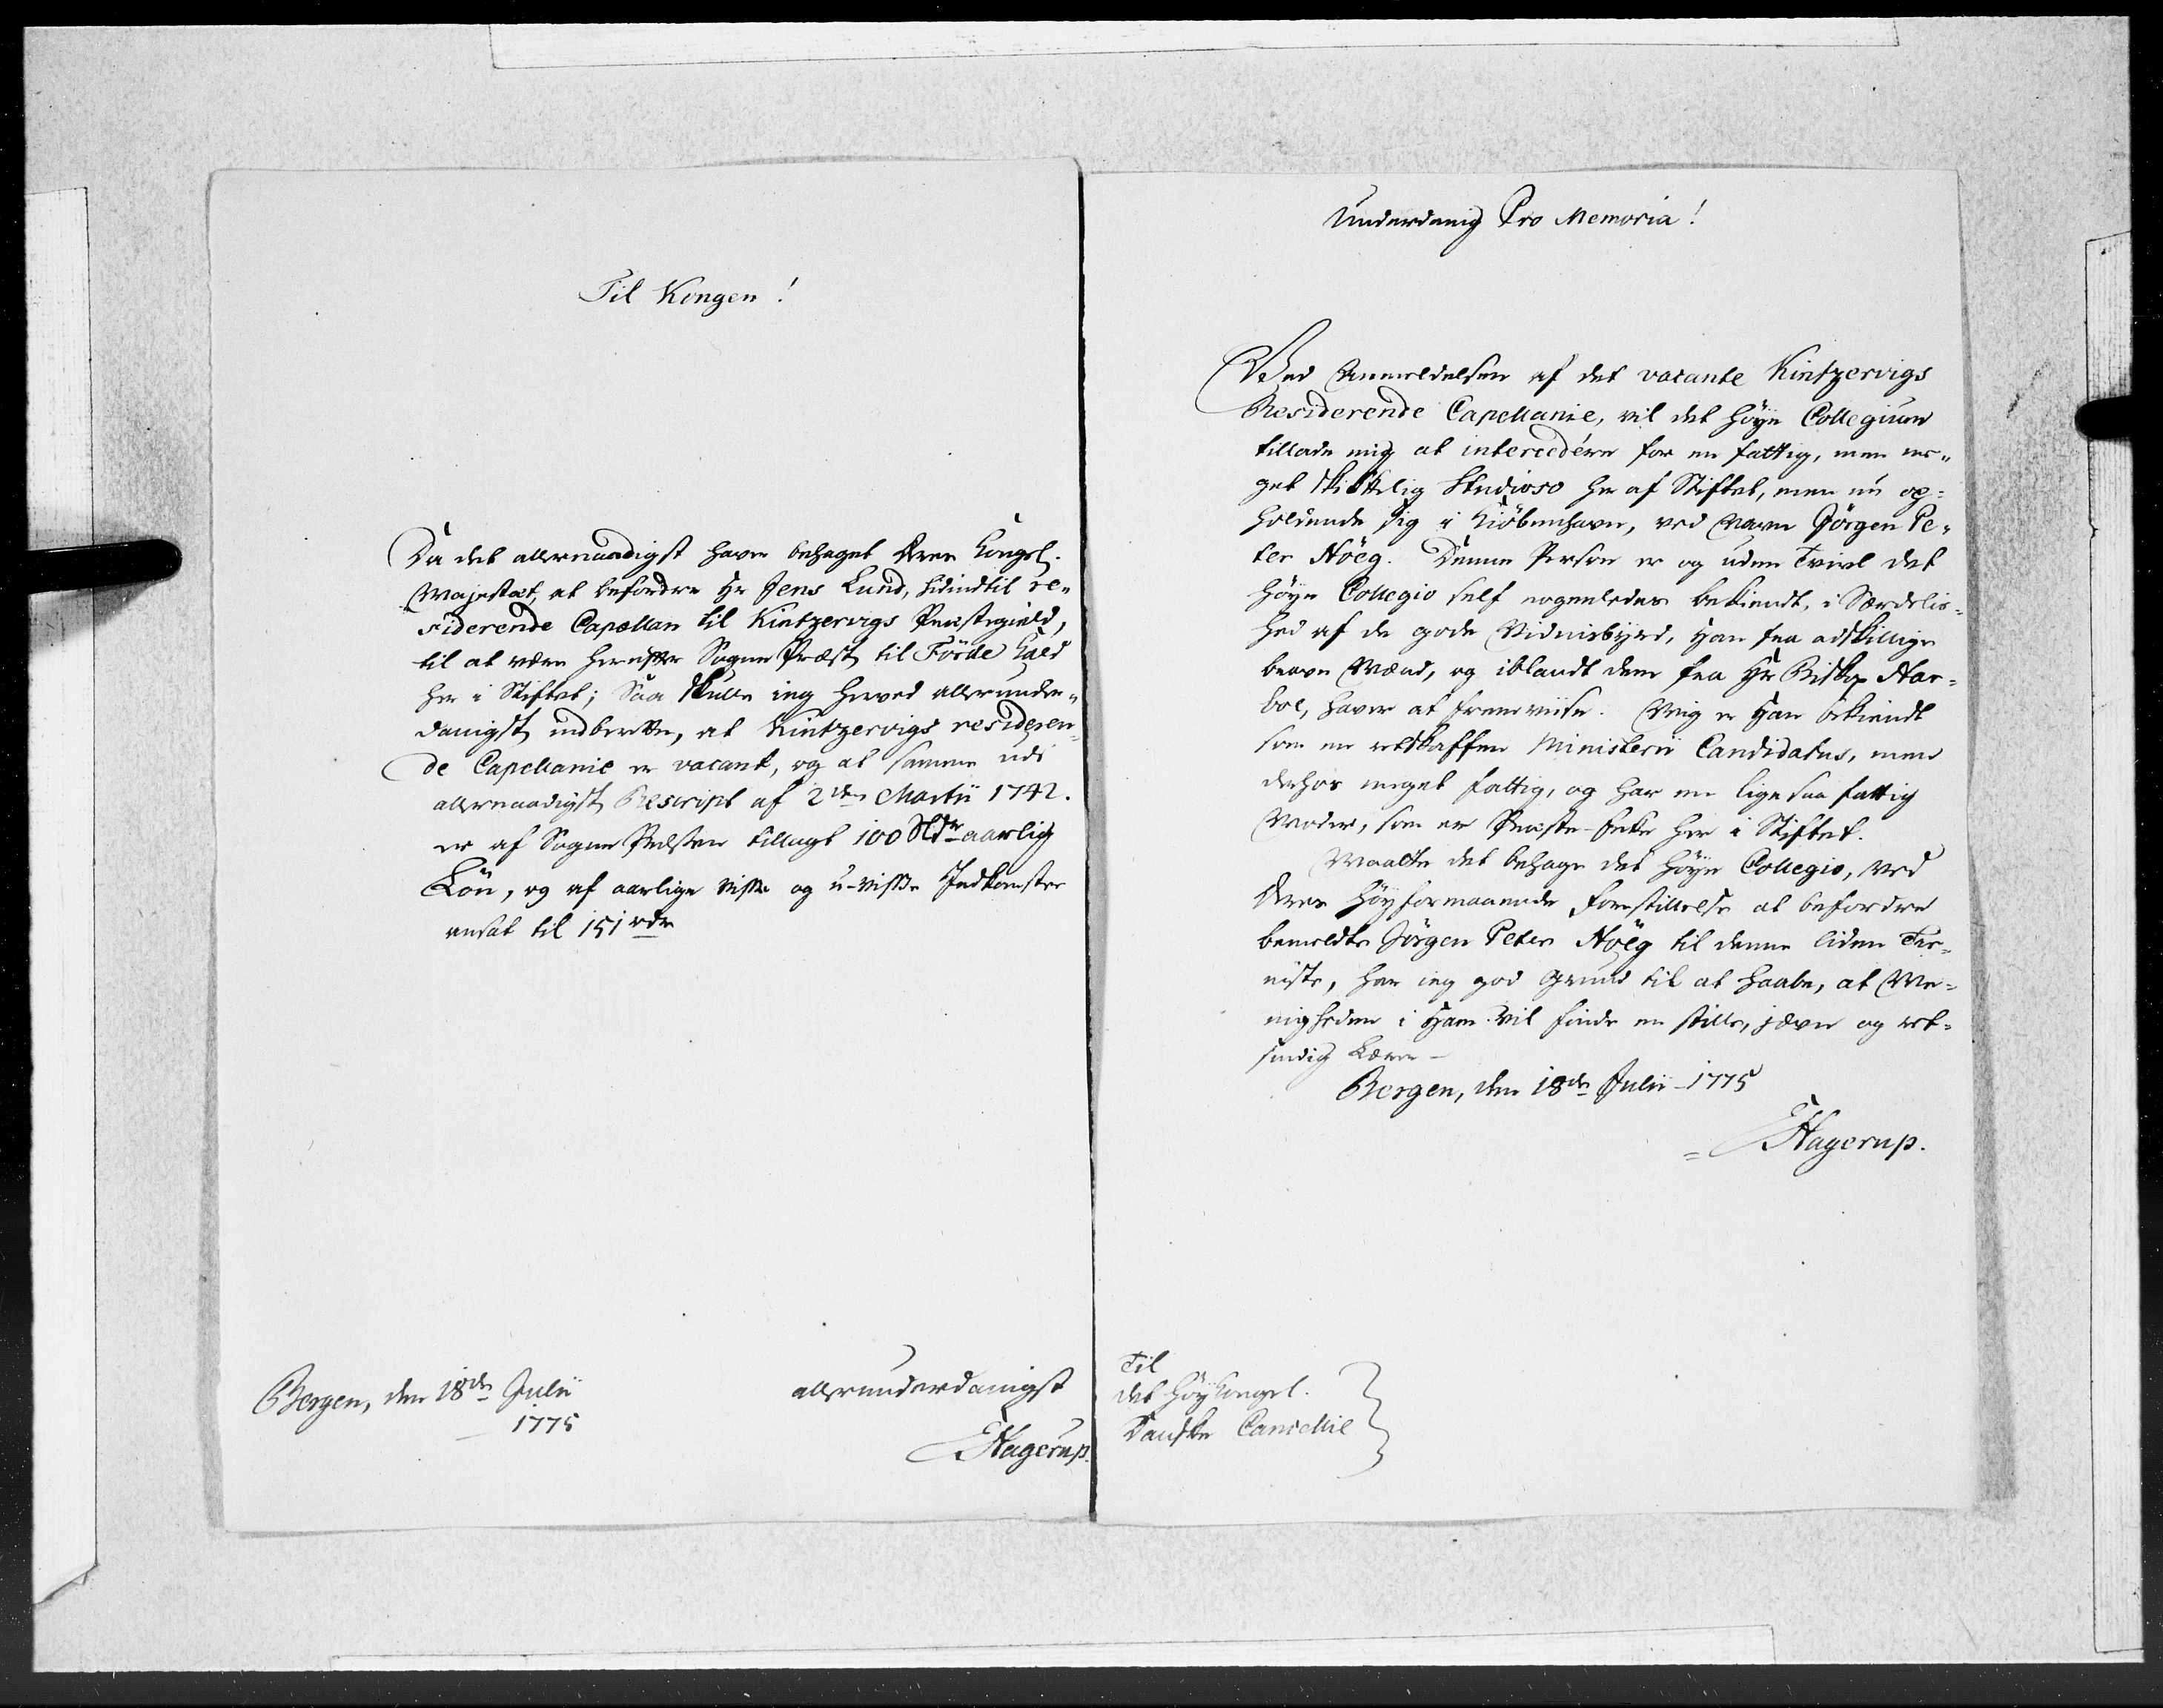 Til Kongen!
Da det allernaadigst haver behaget Deres Kongel.
Majestæt, at befordre Hr Jens Lund, hidindtil re-
siderende Capellan til Kintzervigs Præstegield,
til at være herefter Sogne Præst til Förde Kald
her i Stiftet; Saa skulle jeg herved allerunder-
danigst indberette, at Kintzervigs resideren-
de Capellanie er vacant, og at samme udi
allernaadigst Rescript af 2den Martii 1742.
er af Sogne Præsten tillagt 100 Rdr aarlig
Lön, og af aarlige visse og u-visse Indkomster
ansat til 151 rdr
Bergen, den 18de Julii
1775
allerunderdanigst
EHagerup.
Underdanig Pro Memoria!
Ved Anmeldelsen af det vacante Kintzervigs
Residerende Capellanie, vil det höye Collegium
tillade mig at intercedére for en fattig, men me-
get skikkelig Studioso her af Stiftet, men nu op-
holdende sig i Kiöbenhavn, ved Navn Jörgen Pe-
ter Höeg. Denne Person er og uden Tvivl det
höye Collegio self nogenledes bekiendt, i Særdelis-
hed af de gode Vidnisbyrd, Han fra adskillige
brave Mænd, og iblandt dem fra Hr Biskop Har-
boe, haver at fremviise. Mig er Han bekiendt
som en retskaffen Ministerii Candidatus, men
derhos meget fattig, og har en lige saa fattig
Moder, som er Præste-Enke her i Stiftet.
Maatte det behage det höye Collegio, ved
Deres höyformaaende Forestillelse at befordre
bemeldte Jörgen Peter Höeg til denne liden Tie-
niste, har jeg god Grund til at haabe, at Me-
nigheden i Ham vil finde en stille, jævn og ret-
sindig Lærer -
Bergen, den 18de Julii - 1775
EHagerup.
Til
det höy Kongel.
Danske Cancellie